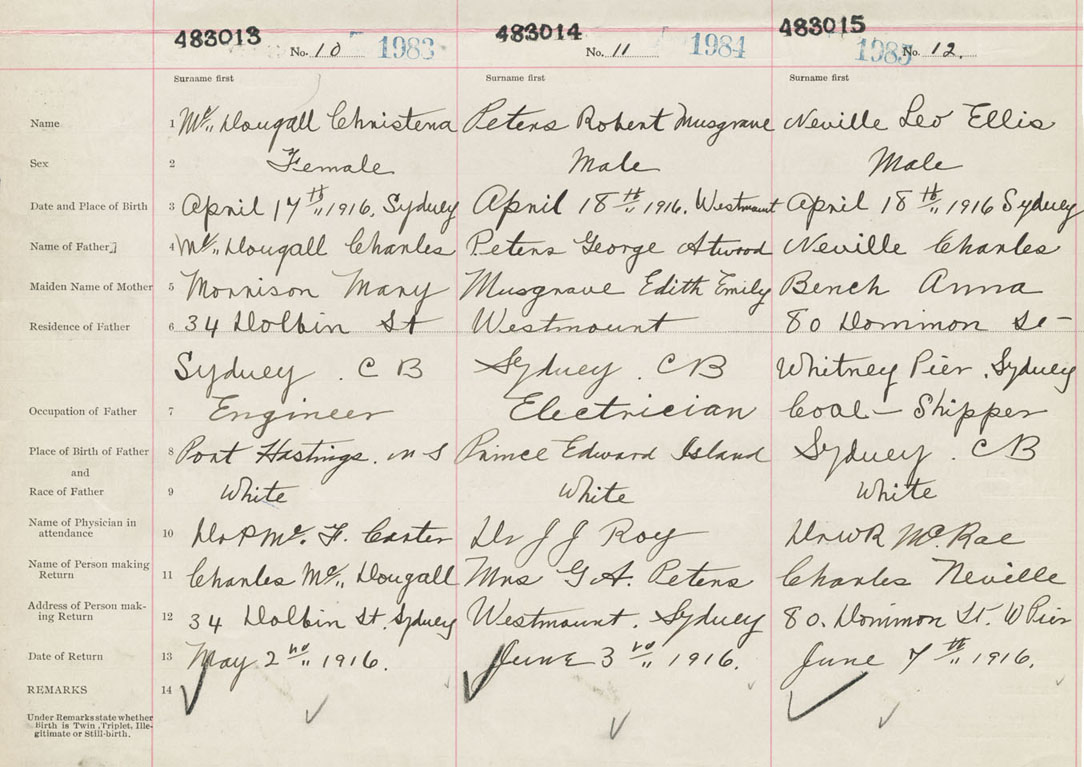 483013 483014 483015
No. 10 1983 No. 11 1984 1985 No. 12.
Surname first Surname first Surname first
Name 1 Mc„ Dougall Christena Peters Robert Musgrave Neville Leo Ellis
Sex 2 Female Male Male
Date and Place of Birth 3 April 17th„ 1916, Sydney April 18th„ 1916. Westmount April 18th„ 1916 Sydney
Name of Father 4 Mc„ Dougall Charles Peters George Atwood Neville Charles
Maiden Name of Mother 5 Morrison Mary Musgrave Edith Emily Bench Anna
Residence of Father 6 34 Dolbin St Westmount 80 Dominion St
Sydney . C B Sydney . C B Whitney Pier . Sydney
Occupation of Father 7 Engineer Electrician Coal-Shipper
Place of Birth of Father 8 Port Hastings. N S Prince Edward Island Sydney . C B
and
Race of Father 9 White White White
Name of Physician in
attendance 10 Dr P Mc. F. Carter Dr J J Roy Dr W R McRae
Name of Person making
Return 11 Charles Mc„ Dougall Mrs G A. Peters Charles Neville
Address of Person mak-
ing Return 12 34 Dolbin St. Sydney Westmount. Sydney 80. Dominion St. W Pier
Date of Return 13 May 2nd„ 1916. June 3rd„ 1916. June 7th„ 1916.
REMARKS 14
Under Remarks state whether
Birth is Twin, Triplet, Ille-
gitimate or Still-birth.